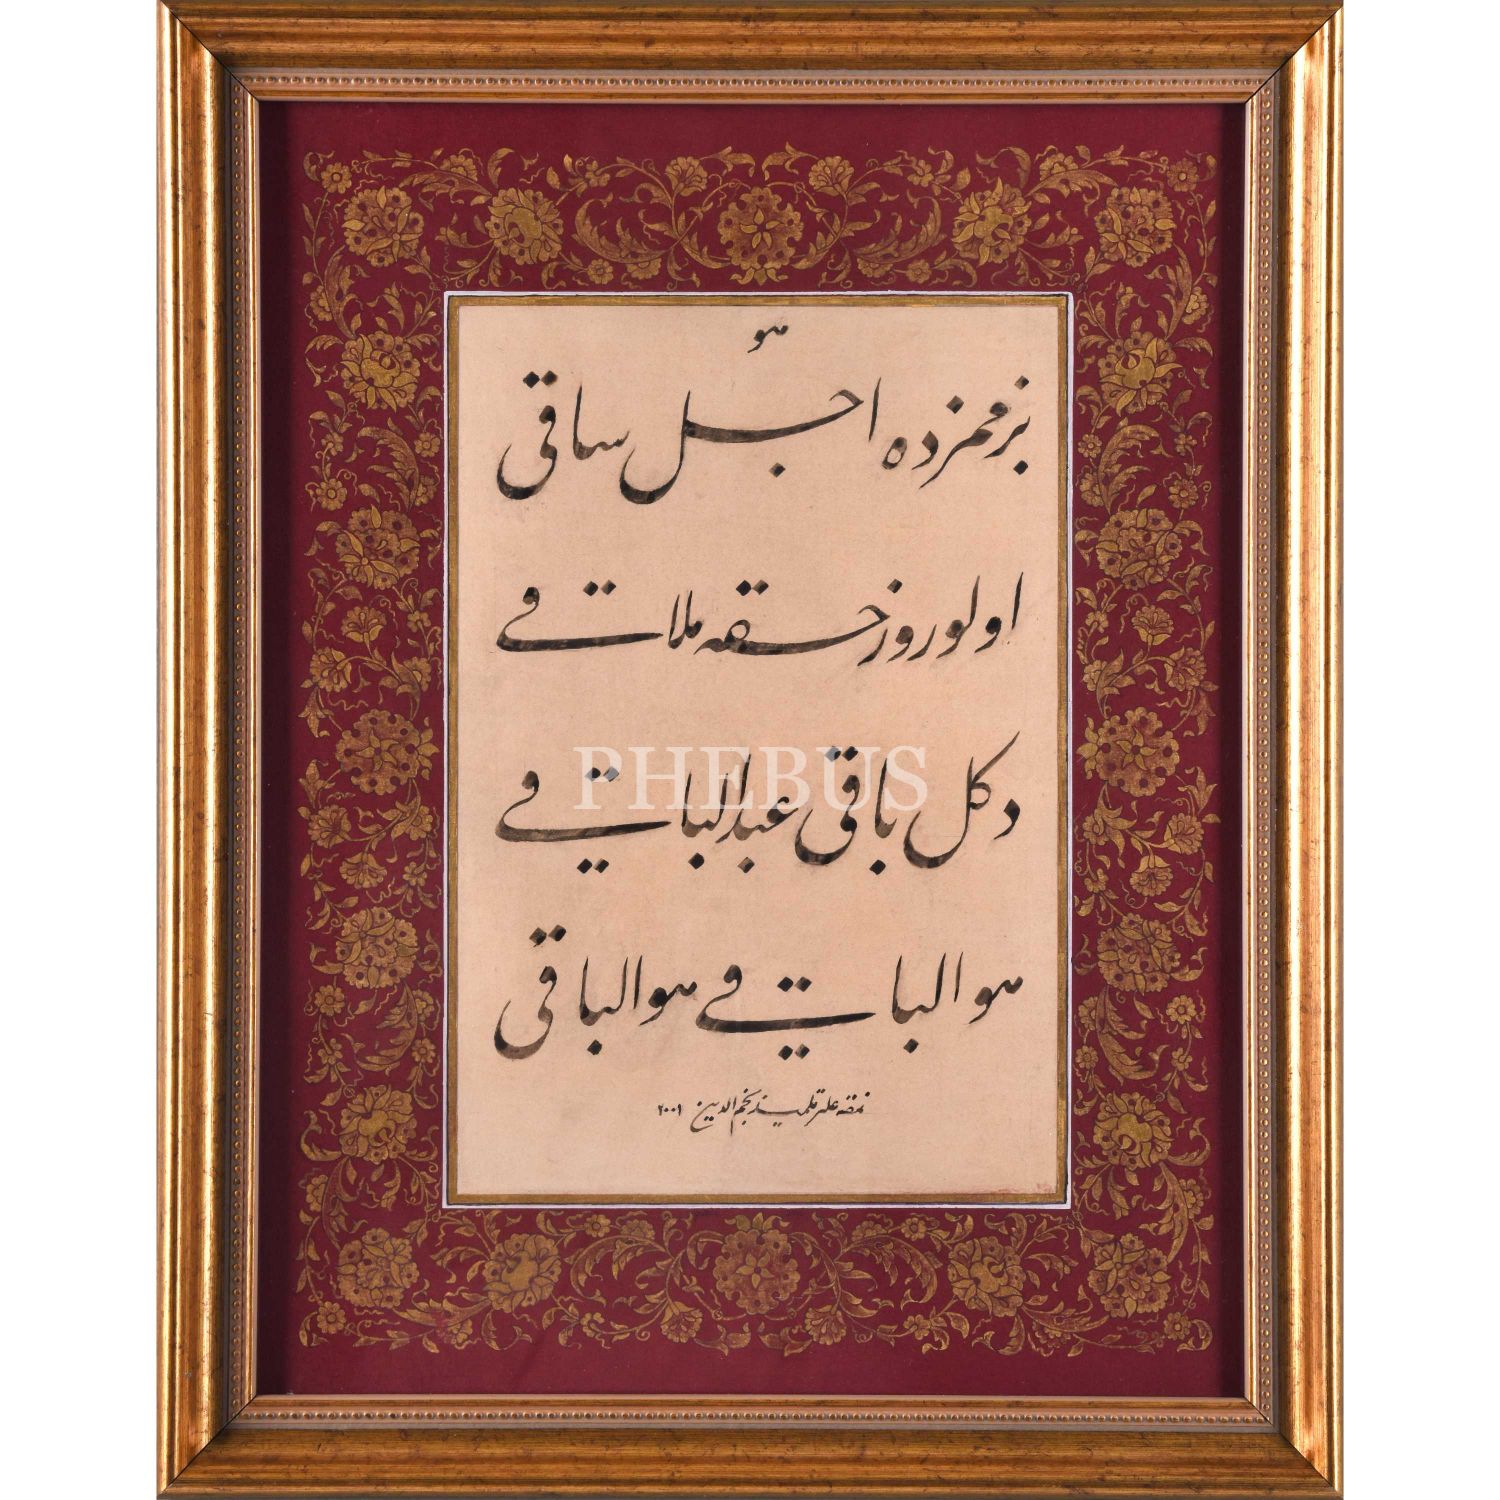 هو
بزمڭزده اجل ساقی
اولوروز حقه ملاقی
دكل باقی عبدالباقی
هو الباقی هو الباقی
نمقه علی تلمیذ نجم الدین ٢٠٠١
PHEBUS